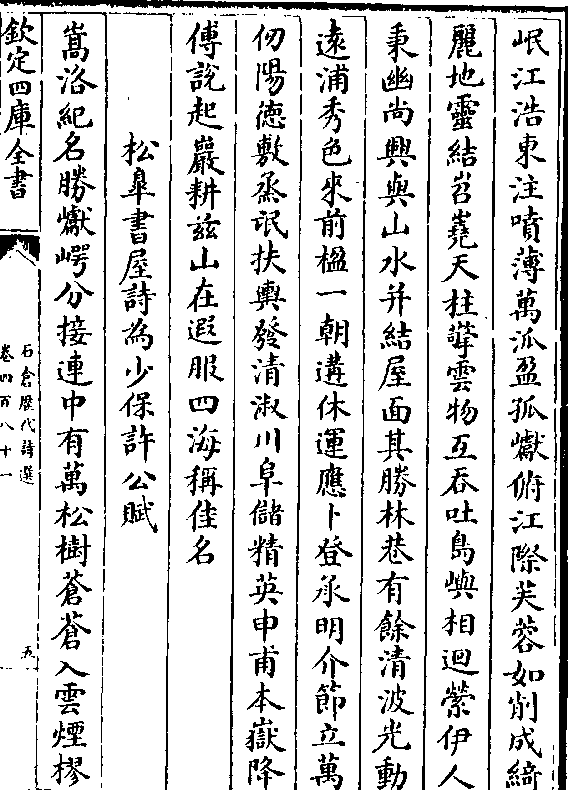 岷江浩東注噴薄萬泒盈孤巘俯江際芙蓉如削成綺
麗地靈結岧嶤天柱擎雲物互吞吐島嶼相迴縈伊人
秉幽尚興與山水并結屋面其勝林巷有餘清波光動
遠浦秀色來前楹一朝遘休運應卜登承明介節立萬
仞陽德敷烝氓扶輿發清淑川阜儲精英申甫本嶽降
傅說起巖耕茲山在遐服四海稱佳名
松臯書屋詩為少保許公賦
嵩洛紀名勝巘崿分接連中有萬松樹蒼蒼入雲煙樛
欽定四庫全書
石倉歷代詩選
卷四百八十一
五